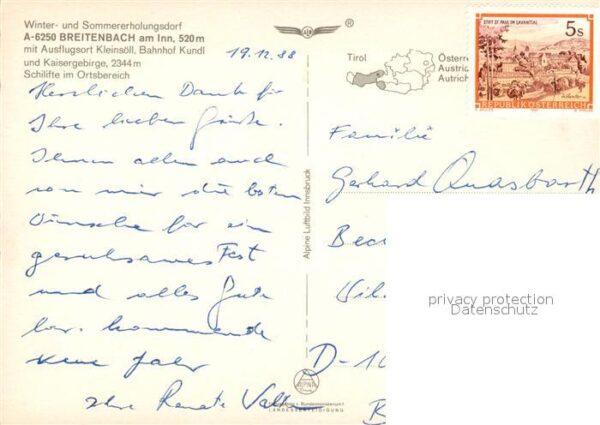 Winter- und Sommererholungsdorf
A-6250 BREITENBACH am Inn, 520 m
mit Ausflugsort Kleinsöll, Bahnhof Kundl
und Kaisergebirge, 2344 m
Schilifte im Ortsbereich
19.12.88
Herzlichen Dank für
Ihre lieben Grüße.
Ihnen allen auch
von mir die besten
Wünsche für ein
geruhsames Fest
und alles Gute
kommende
neue Jahr
Ihre Renate
Alpine Luftbild Innsbruck
®
Tirol
Österre
Austria
Autrich
STIFT ST. PAUL IM LAVANTTAL
5s
REPUBLIK ÖSTERREICH
Familie
Gerhard Quasbarth
Bec
Wil
D-10
B
privacy protection
Datenschutz
ALPINE
LANDESVERTEIDIGUNG